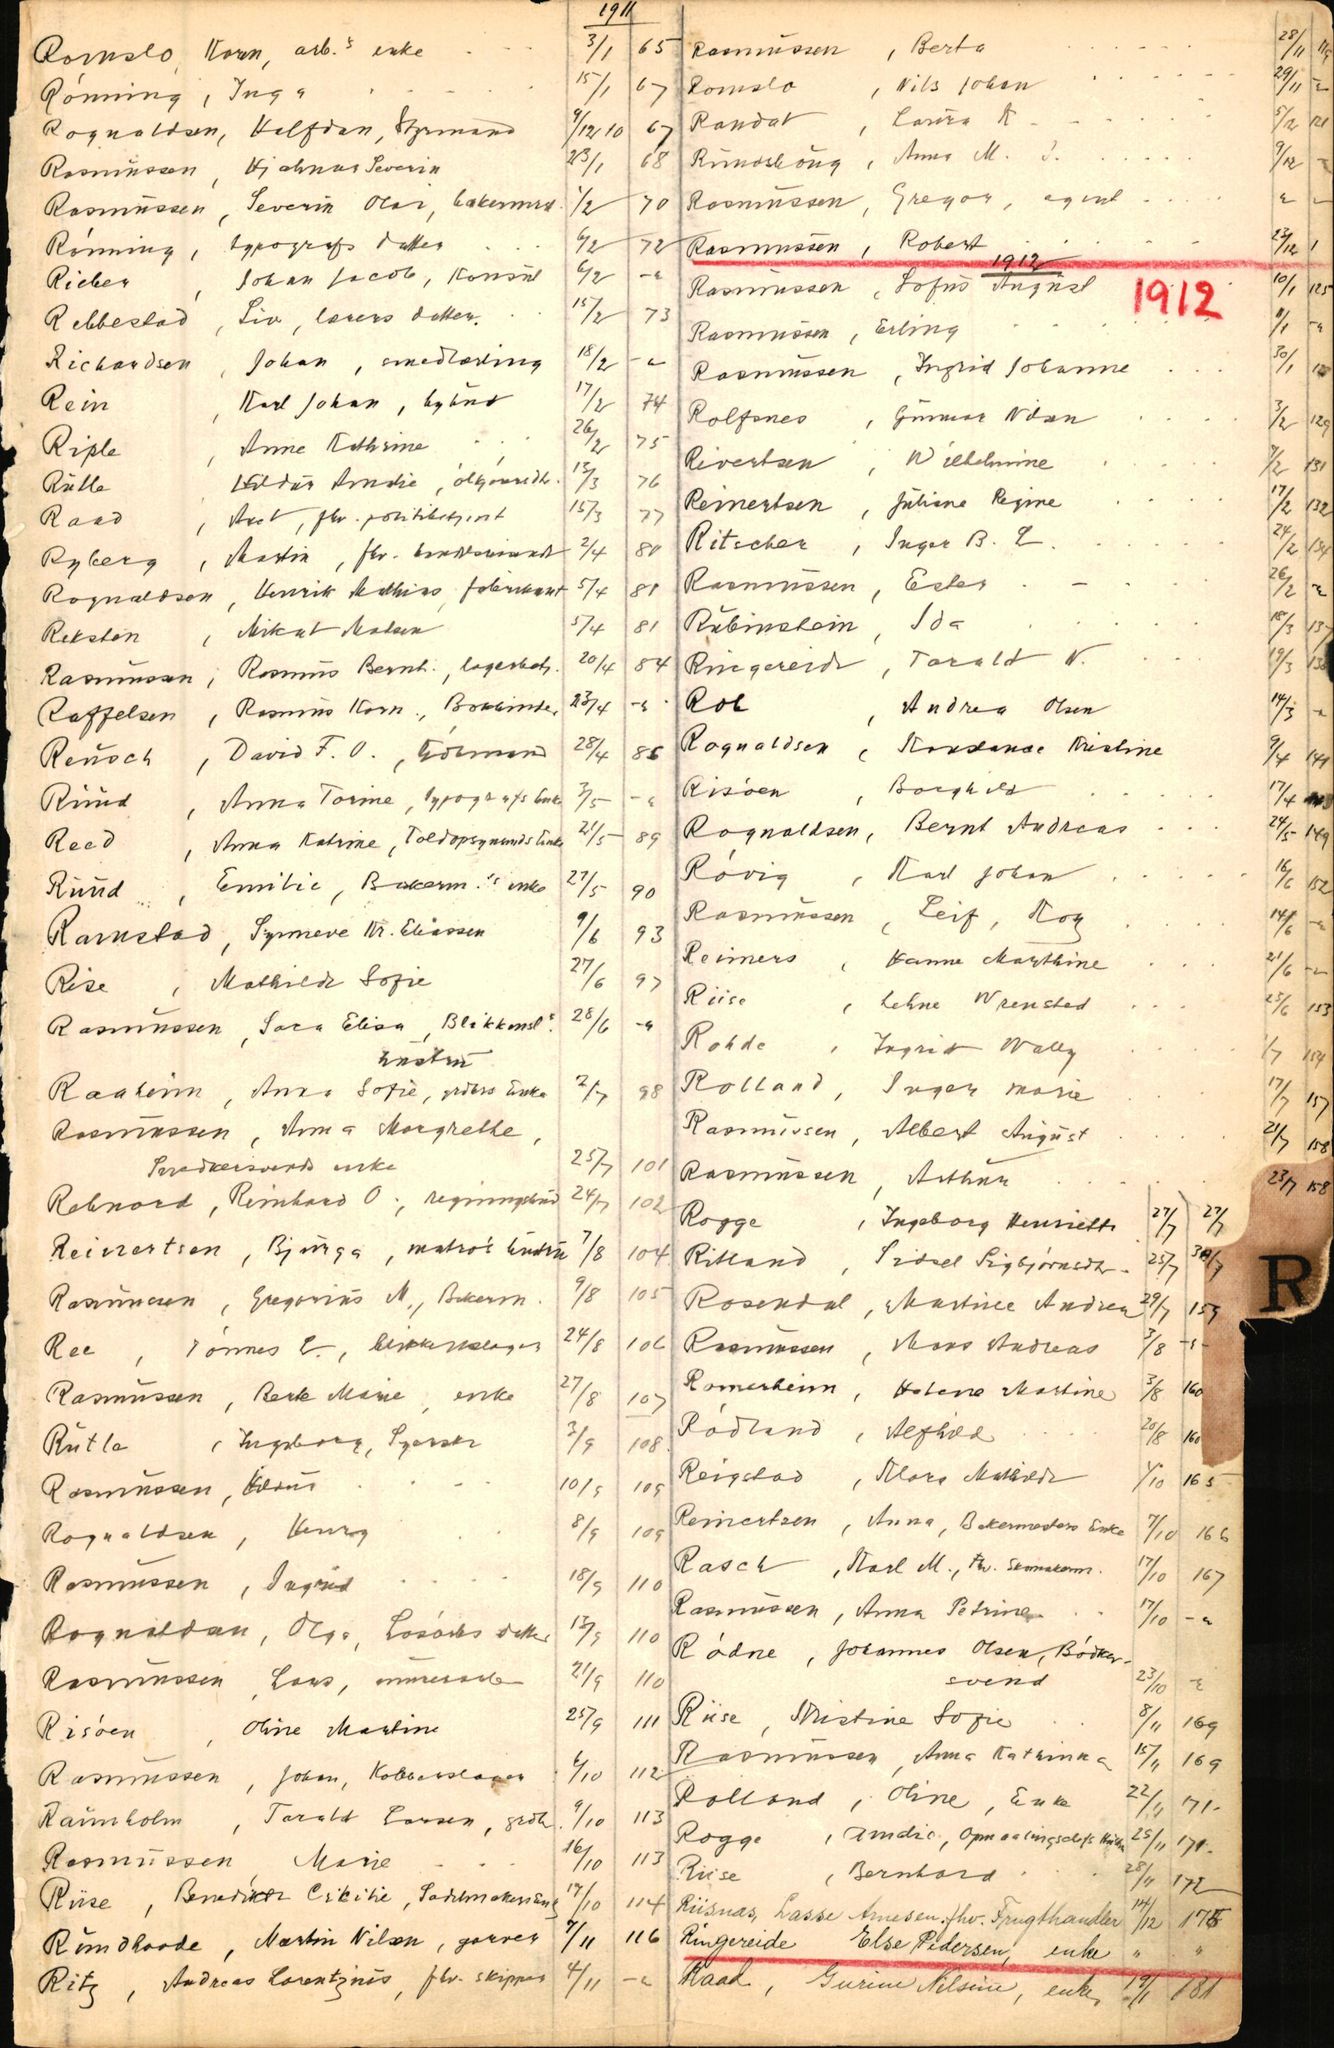 1911
Romslo, Karn, arb.s enke 3/1 65
Rönning, Inga 15/1 67
Rognaldsen, Halfdan, Styrmand 9/12 10 67
Rasmüssen, Hjalmar Severin 23/1 68
Rasmüssen, Severin Olai, bakermest. 1/2 70
Rönning, typografs datter 6/2 72
Rieber, Johan Jacob, Konsül 6/2 -"
Rebbestad, Liv, lærers datter. 15/2 73
Richardsen, Johan, smedlærling 18/2 -"
Rein, Karl Johan, bybüd 17/2 74
Riple, Anne Kathrine 26/2 75
Rütle, Amalie, 13/3 76
Raad, Axel, fhv. politibetjent 15/3 77
Ryberg, Martin, fhv. 2/4 80
Rognaldsen, Henrik Mathias, fabrikant 5/4 81
Reksten, Mikal Madsen 5/4 81
Rasmüssen, Rasmüs Bernt., lagerbetj. 20/4 84
Raffelsen, Rasmüs Korn., Bokbinder 23/4 -"
Reüsch, David F. O., Kjöbmand 28/4 85
Rüüd, Anna Torine, typografs Enke 3/5 -"
Reed, Anna Katrine, Toldopsynmands Enke 21/5 89
Rüüd, Emilie, Bakerm.'s enke 27/5 90
Ramstad, Synneve Kr. Eliassen 9/6 93
Rise, Mathilde Sofie 27/6 97
Rasmüssen, Sara Elisa, Blikkensl.s 28/6 -"
hüstrü
Raaheim, Anna Sofie, grdbrs Enke 2/7 98
Rasmüssen, Anna Margrethe,
Snedkersvends enke 25/7 101
Rehnord, Reinhard O., regningsbüd 24/7 102
Reinertsen, Bjürga, matros hüstrü 7/8 104
Rasmüssen, Gregoriüs M., Bakerm. 9/8 105
Ree, Tönnes E., blikkenslager 24/8 106
Rasmüssen, Berte Marie, enke 27/8 107
Rütle, Ingeborg, Syerske 3/9 108
Rasmüssen, Hildür 10/9 109
Rognaldsen, Henry 8/9 109
Rasmüssen, Ingrid 18/9 110
Rognaldsen, Olga, Losörls datter 13/9 110
Rasmüssen, Lars, mürerarb. 21/9 110
Risöen, Oline Martine 25/9 111
Rasmüssen, Johan, Kobberslager 6/10 112
Raünholm, Torald Larsen, grdb. 9/10 113
Rasmüssen, Marie 16/10 113
Riise, Benedikte Cicilie, Sadelmakers Enke 17/10 114
Ründhovde, Martin Nilsen, garver 7/11 116
Ritz, Andreas Lorentziüs, fhv. skipper 4/11 -"
Rasmüssen, Berta 28/11
Romslo, Nils Johan 29/11 -"
Randal, Laüra K 5/12 121
Ründhöüg, Anna M. J. 9/12 -"
Rasmüssen, Gregor, agent " -"
Rasmüssen, Robert 23/12
1912
Rasmüssen, Sofüs Aügüst 10/1 125
1912
Rasmüssen, Erling -"
Rasmüssen, Ingrid Johanne 30/1
Rolfsnes, Günnar Nilsen 3/2 129
Rivertsen, Wilhelmine 7/2 131
Reinertsen, Jüliane Regine 17/2 132
Ritscher, Inger B. E. 24/2 134
Rasmüssen, Ester 26/2 -"
Rübinstein, Ida 18/3
Ringereide, Torald N. 19/3
Rol, Andrea Olsen 14/3 -"
Rognaldsen, Konstanse Kristine 9/4 141
Risöen, Borghild 17/4
Rognaldsen, Bernt Andreas 24/5 149
Rövig, Karl Johan 16/6 152
Rasmüssen, Leif, Roy 14/6 -"
Reimers, Hanne Marthine 21/6 -"
Riise, Lehne Wrenstad 25/6 153
Rohde, Ingrid Wally 1/7 154
Rolland, Inger Marie 17/7 157
Rasmüssen, Albert Aügüst 21/7 158
Rasmüssen, Arthür 23/7 158
Rogge, Ingeborg Henriette 27/7 27/7
Ritland, Sidsel Sigbjörnsdtr. 25/7 30/7
R
Rosendal, Martine Andrea 29/7 159
Rasmüssen, Mons Andreas 3/8 -"-
Romerheim, Helene Martine 3/8 160
Rödland, Alfhild 20/8 160
Reigstad, Klara Mathilde 1/10 165
Reinertsen, Anna, Bakermesters Enke 7/10 166
Rasch, Karl M., fhv. Skomakerm. 17/10 167
Rasmüssen, Anna Petrine 17/10 -"
Rödne, Johannes Olsen, Bödker-
svend 23/10 -"
Riise, Kristine Sofie 8/11 169
Rasmüssen, Anna Katrinka 15/11 169
Rolland, Oline, Enke 22/11 171-
Rogge, Amdie, Opmaalingschefs 25/11 171-
Riise, Bernhard 28/11 172
Riisnas, Lasse Arnesen. fhv. Frugthandler 14/12 175
Ringereide Else Pedersen, enke " "
Raad, Gurine Nilsine, enke 19/1 181